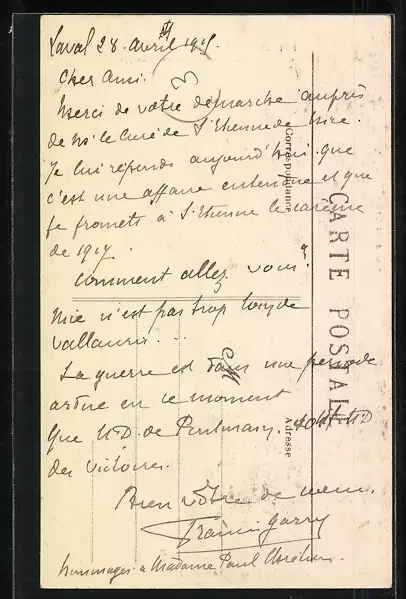 Laval 28 avril 191
Cher Ami.
Merci de votre démarche auprès
de Mr le Curé de St Etienne de Nice.
Je lui réponds aujourd'hui que
c'est une affaire entendue et que
je promets à St Etienne le carême
de 1917.
Comment allez vous?
Nice n'est pas trop loin de
Vallauris...
La guerre est dans une période
ardue en ce moment
Que N.D. de Pontmain soit N.D
des Victoires.
Bien vôtre de
Francis Garry
hommages à Madame Paul
CARTE POSTALE
Correspondance
Adresse